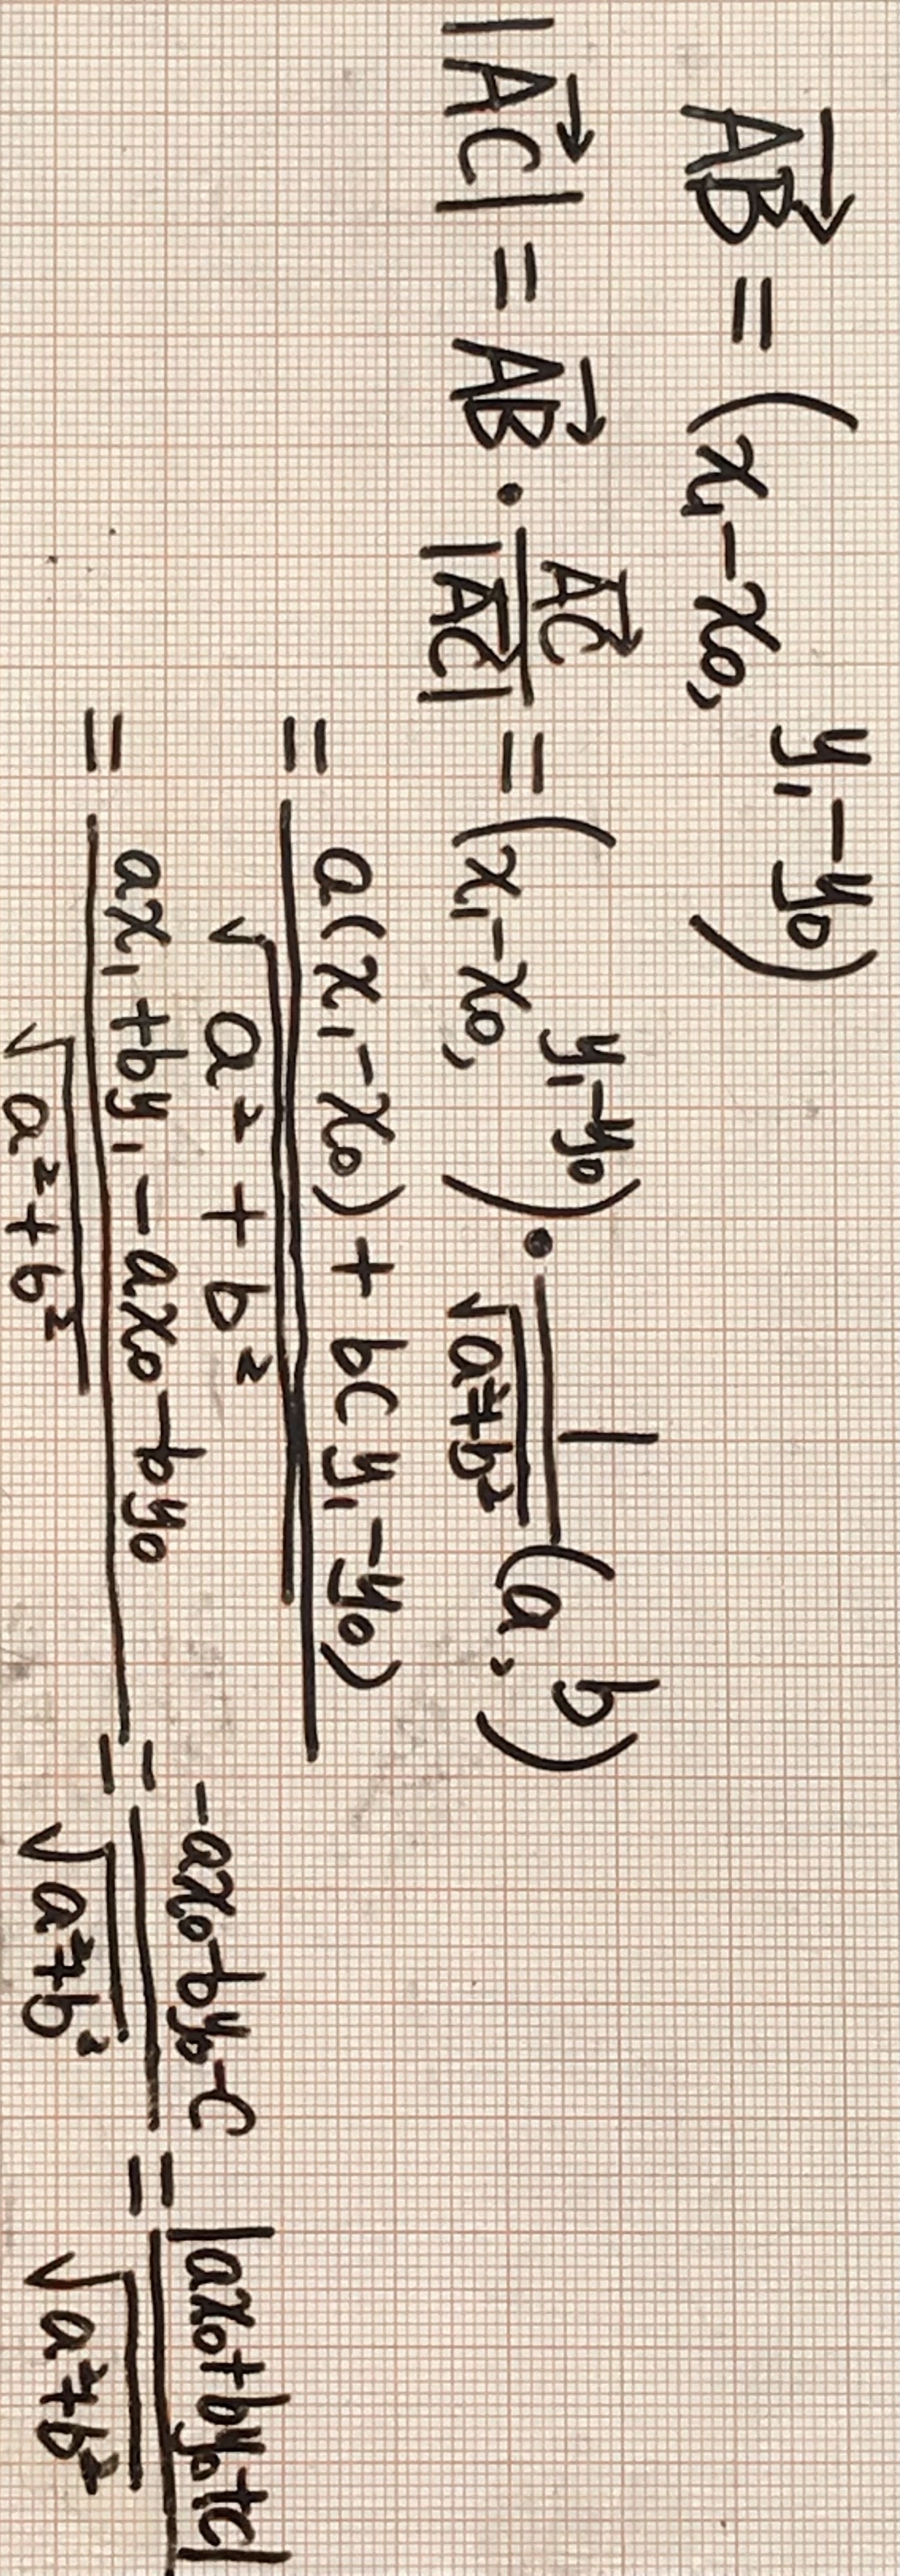 $\overrightarrow{AB} = (x_1 - x_0, y_1 - y_0)$
$|\overrightarrow{AC}| = \overrightarrow{AB} \cdot \frac{\overrightarrow{AC}}{|\overrightarrow{AC}|} = (x_1 - x_0, y_1 - y_0) \cdot \frac{1}{\sqrt{a^2+b^2}} (a, b)$
$= \frac{a(x_1 - x_0) + b(y_1 - y_0)}{\sqrt{a^2 + b^2}}$
$= \frac{ax_1 + by_1 - ax_0 - by_0}{\sqrt{a^2+b^2}} = \frac{-ax_0 - by_0 - c}{\sqrt{a^2+b^2}} = \frac{|ax_0 + by_0 + c|}{\sqrt{a^2+b^2}}$